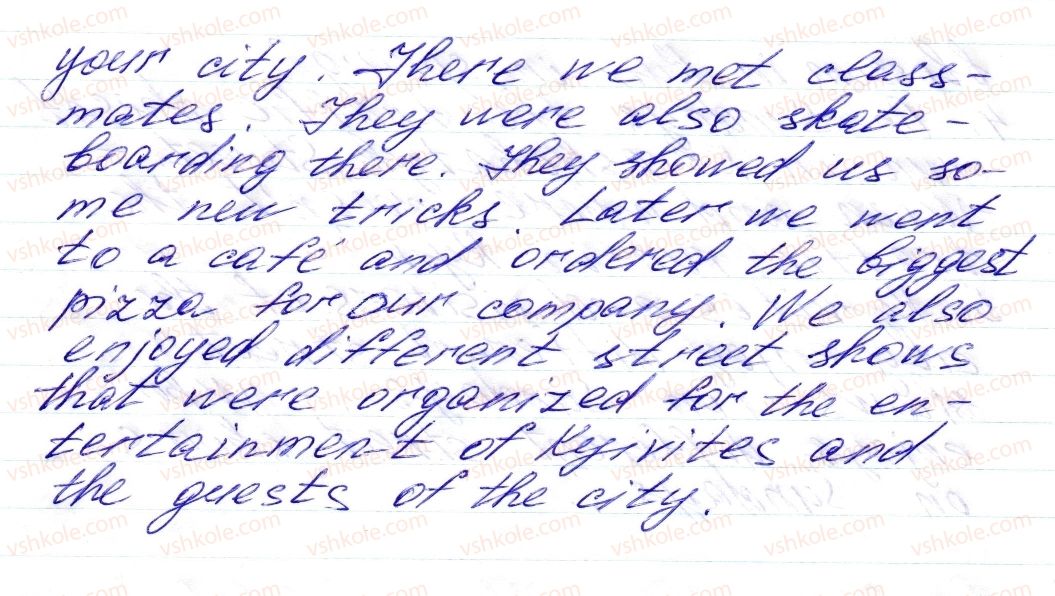 your city. There we met class-
mates. They were also skate-
boarding there. They showed us so-
me new tricks. Later we went
to a café and ordered the biggest
pizza for our company. We also
enjoyed different street shows
that were organized for the en-
tertainment of Kyivites and
the guests of the city.